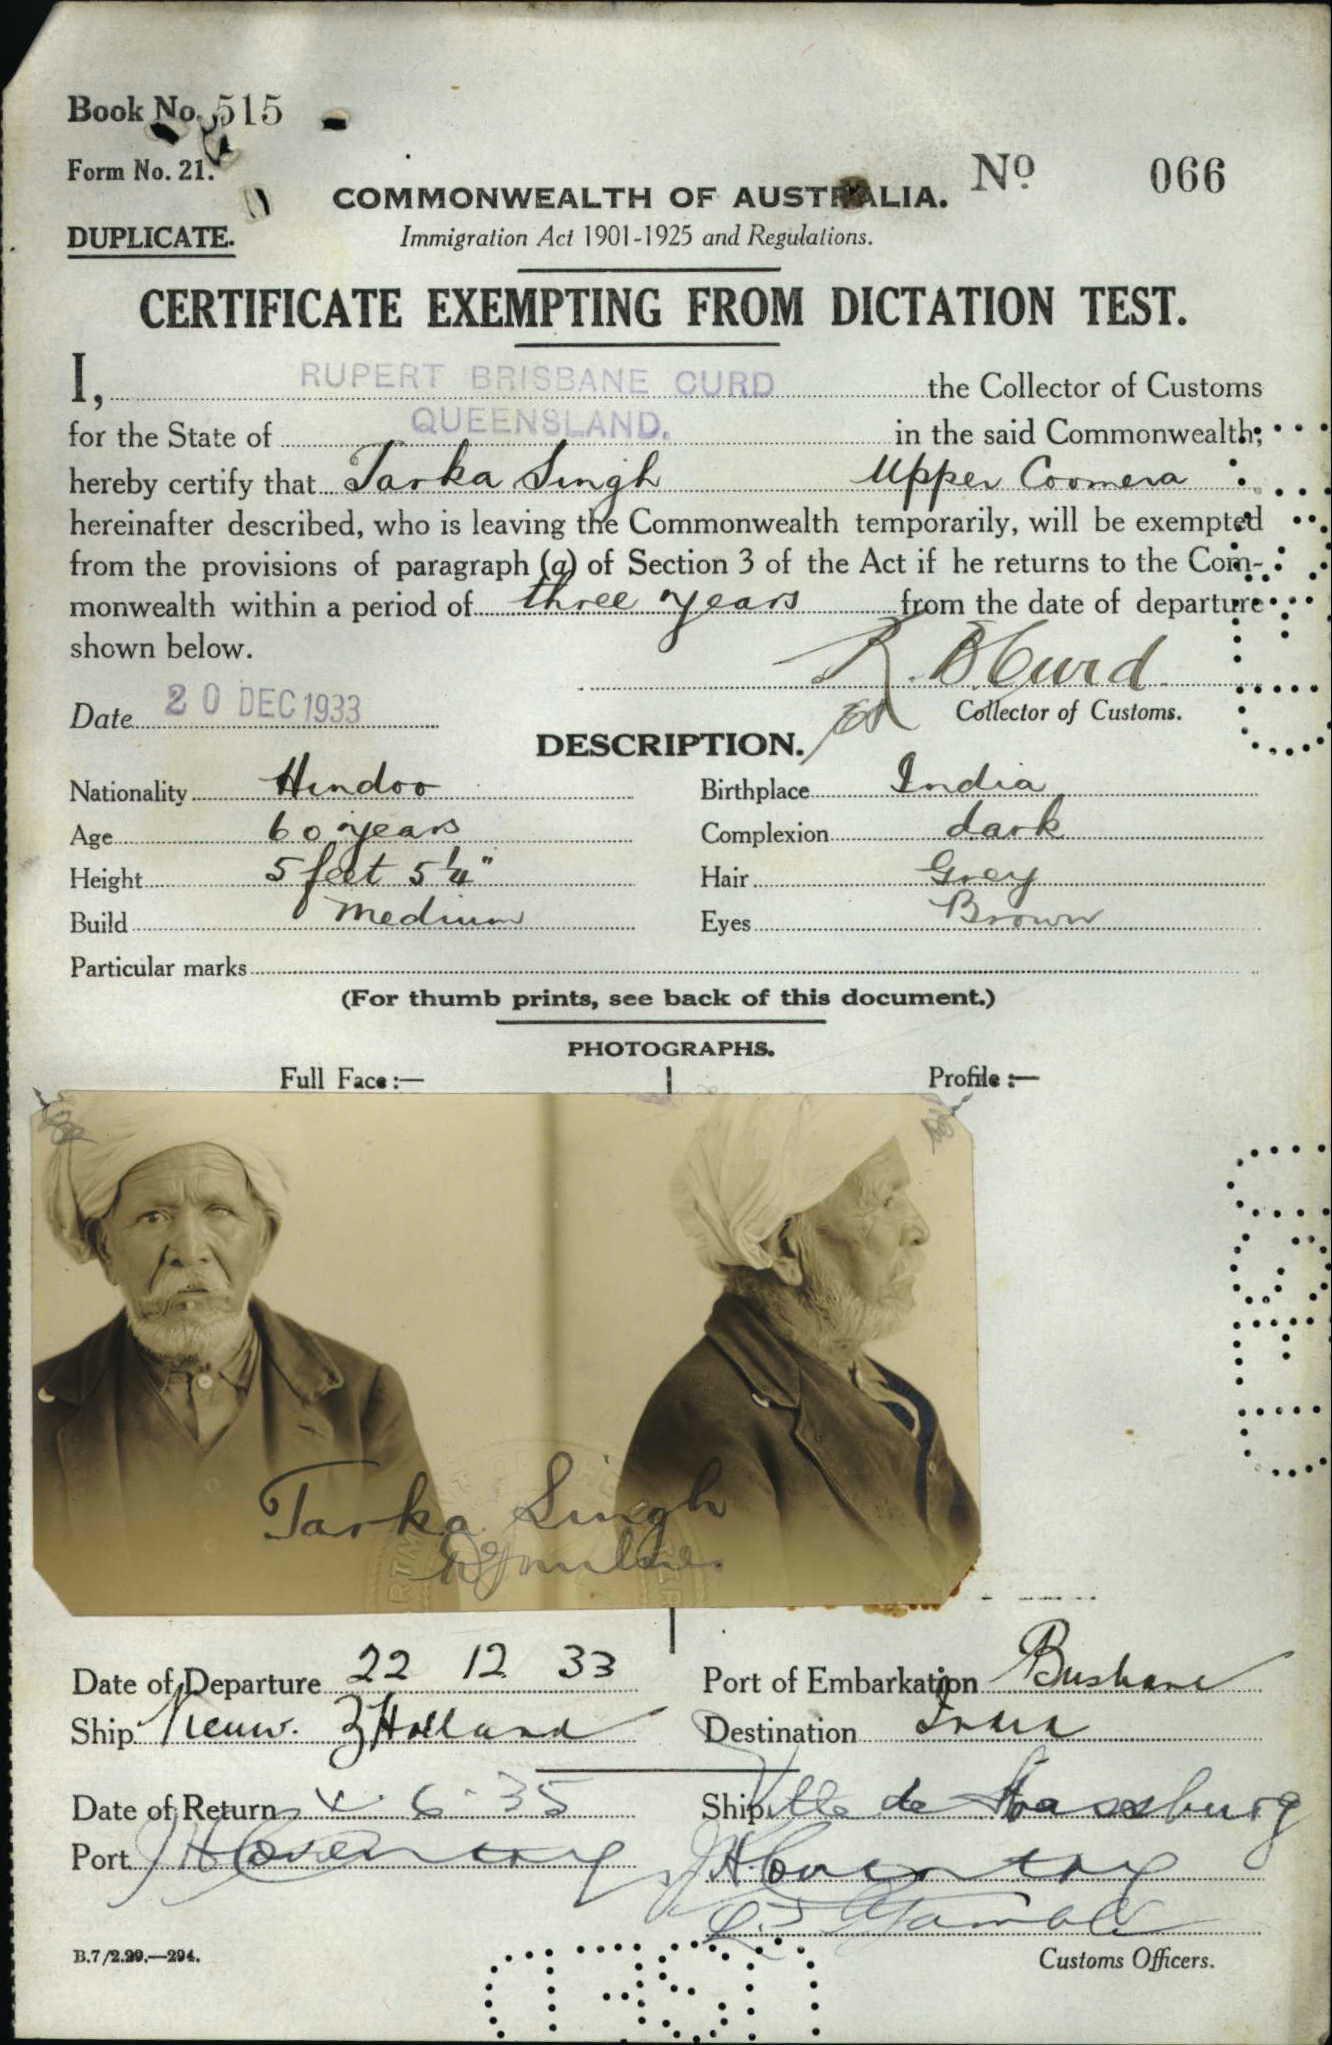 Book No. 515
Form No. 21.
DUPLICATE.
No 066
COMMONWEALTH OF AUSTRALIA.
Immigration Act 1901-1925 and Regulations.
CERTIFICATE EXEMPTING FROM DICTATION TEST.
I, RUPERT BRISBANE CURD the Collector of Customs
for the State of QUEENSLAND. in the said Commonwealth;
hereby certify that Tarka Singh Upper Coomera
hereinafter described, who is leaving the Commonwealth temporarily, will be exempted
from the provisions of paragraph (a) of Section 3 of the Act if he returns to the Com-
monwealth within a period of three years from the date of departure
shown below.
R. B Curd
Date 20 DEC 1933
Collector of Customs.
DESCRIPTION.
Nationality Hindoo Birthplace India
Age 60 years Complexion dark
Height 5 feet 5 1/4" Hair Grey
Build Medium Eyes Brown
Particular marks
(For thumb prints, see back of this document.)
PHOTOGRAPHS.
Full Face :— Profile :—
Tarka Singh
Date of Departure 22 12 33 Port of Embarkation Brisbane
Ship Nieuw. Holland Destination India
Date of Return 4. 6. 35 Ship Ville de Strassburg
Port J H Coventry J H Coventry
B.7/2.29.—294.
Customs Officers.